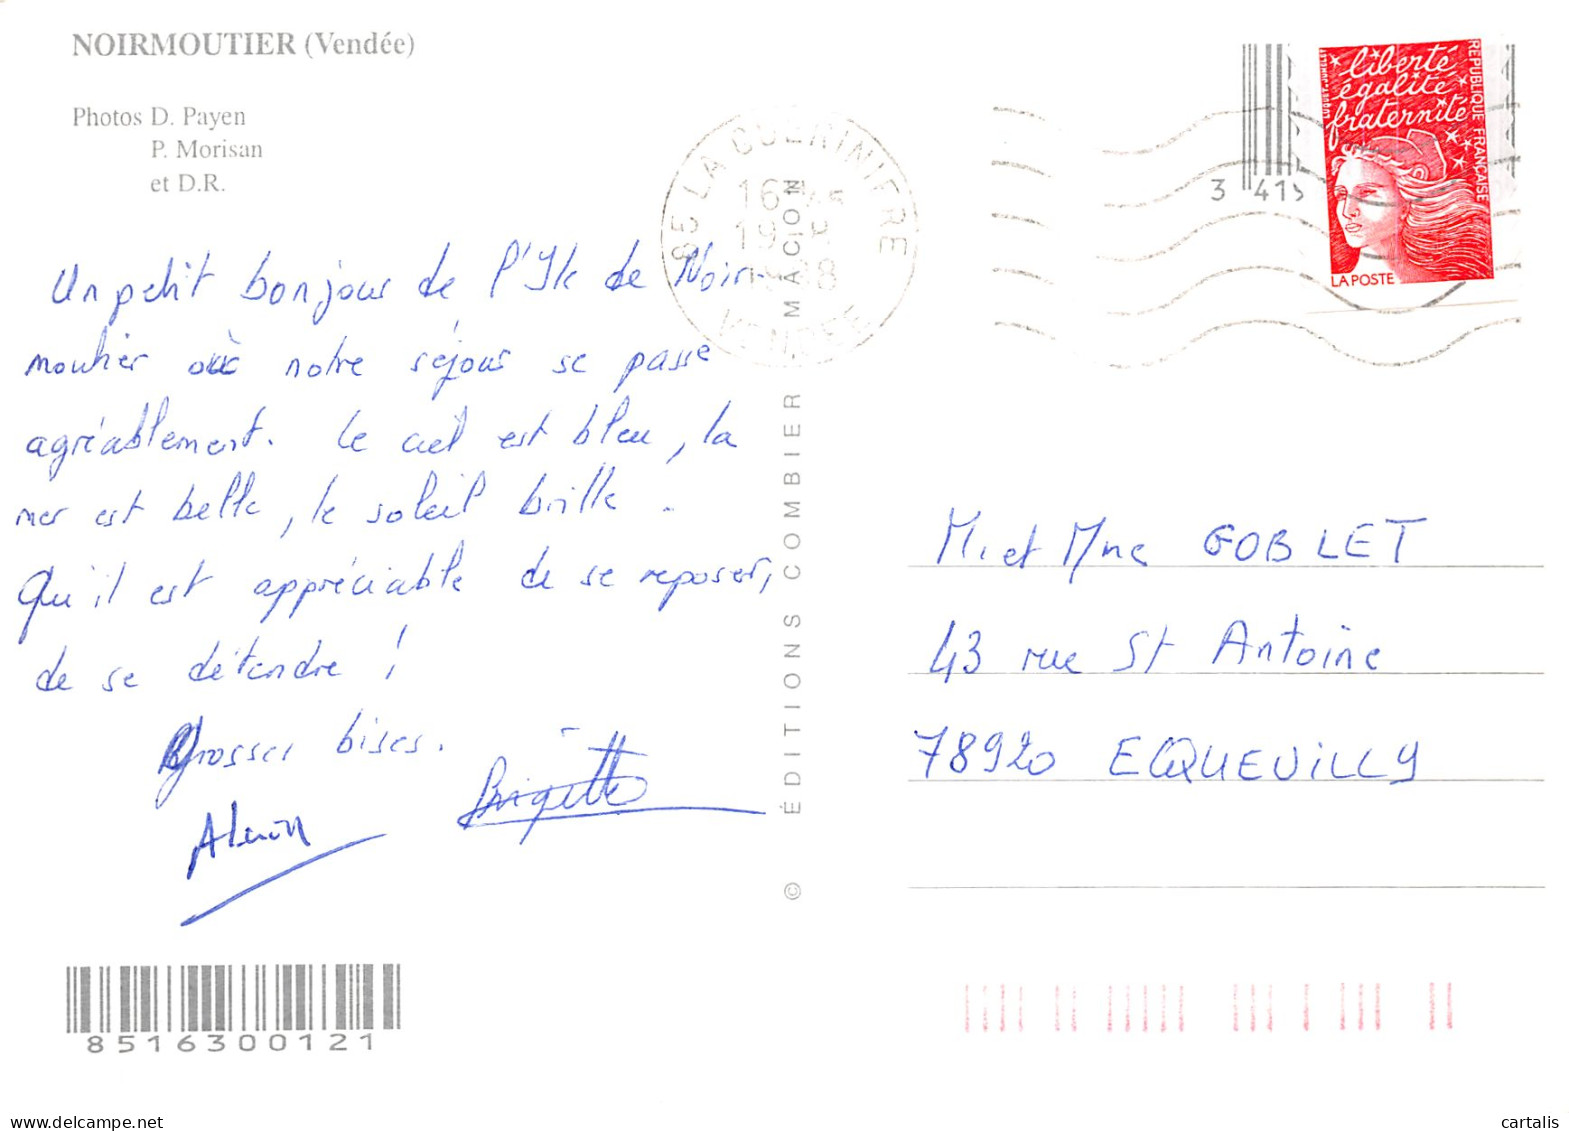 NOIRMOUTIER (Vendée)
Photos D. Payen
P. Morisan
et D.R.
Un petit bonjour de l'Ile de Noir-
moutier où notre séjour se passe
agréablement. Le ciel est bleu, la
mer est belle, le soleil brille.
Qu'il est appréciable de se reposer,
de se détendre !
Grosses bises.
Alain
Brigitte
8516300121
85 LA GUERINIERE
16H45
VENDÉE
© ÉDITIONS COMBIER MACON
3 415
liberté
égalité
fraternité
RÉPUBLIQUE FRANÇAISE
LUQUET. JUMELET
LA POSTE
M. et Mme GOBLET
43 rue St Antoine
78920 ECQUEVILLY
cartalis